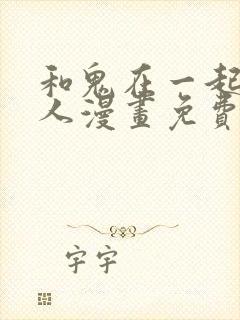 和鬼在一起
人漫畫免費
字宇